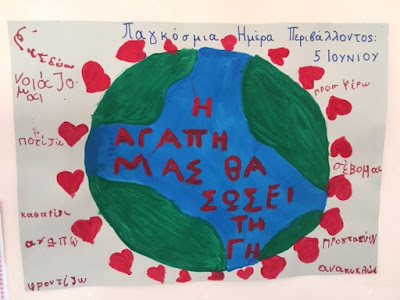 Παγκόσμια Ημέρα Περιβάλλοντος:
5 ΙΟΥΝΙΟΥ
νοιάζο-
μαι
ποτίζω
καθαρίζω
αγαπώ
φροντίζω
Η
ΑΓΑΠΗ
ΜΑΣ ΘΑ
ΣΩΣΕΙ
ΤΗ
ΓΗ
προσφέρω
σέβομαι
ανακυκλώνω